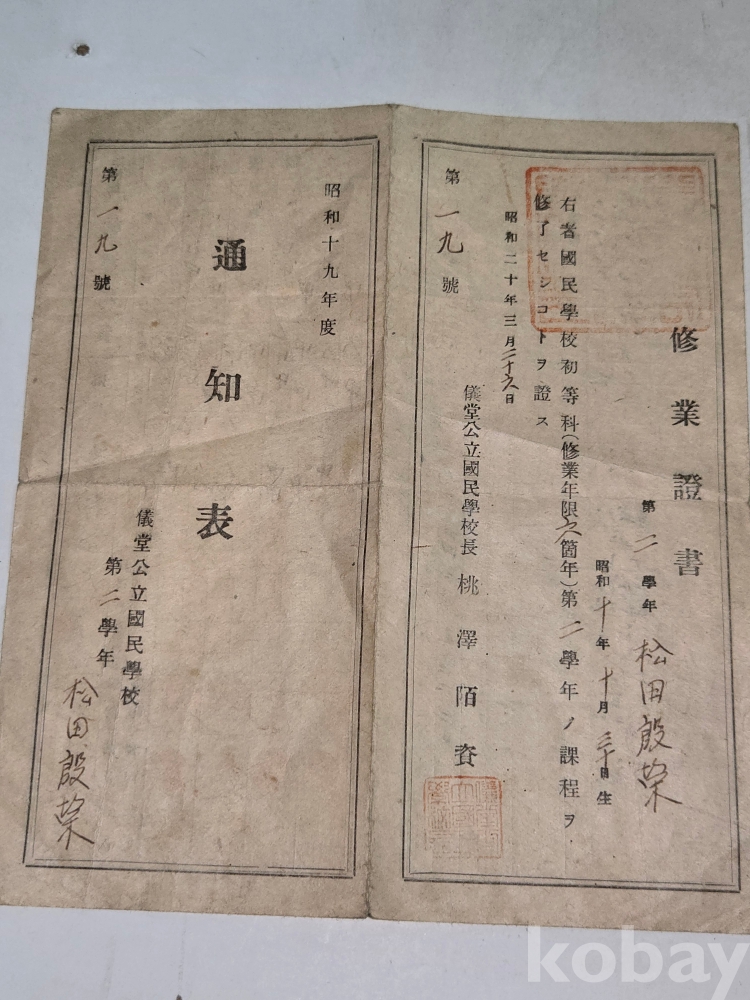 修業證書
第二學年 松田殷榮
昭和十年十月三十日生
右者國民學校初等科(修業年限六箇年)第二學年ノ課程ヲ
修了セシコトヲ證ス
昭和二十年三月二十六日
儀堂公立國民學校長 桃澤陌
第一九號
昭和十九年度
通知表
儀堂公立國民學校
第二學年 松田殷榮
第一九號
kobay